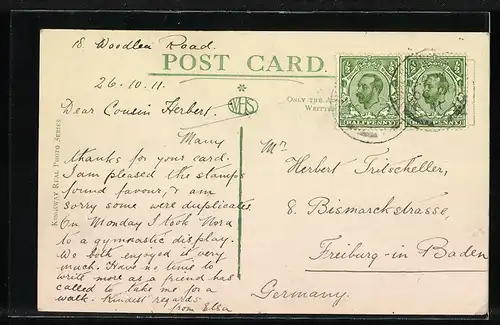 18. Woodlen Road.
POST CARD.
26.10.11.
ONLY THE A
WRITTE
Dear Cousin Herbert.
Many
thanks for your card.
I am pleased the stamps
found favour, & am
sorry some were duplicates.
On Monday I took Nora
to a gymnastic display.
We both enjoyed it very
much. Have no time to
write more as a friend has
called to take me for a
walk. Kindest regards
from Elsa
KINGSWAY REAL PHOTO SERIES
WHS
HALFPENNY
HALFPENNY
Mr
Herbert Tritscheller,
8. Bismarckstrasse,
Freiburg-in Baden
Germany.